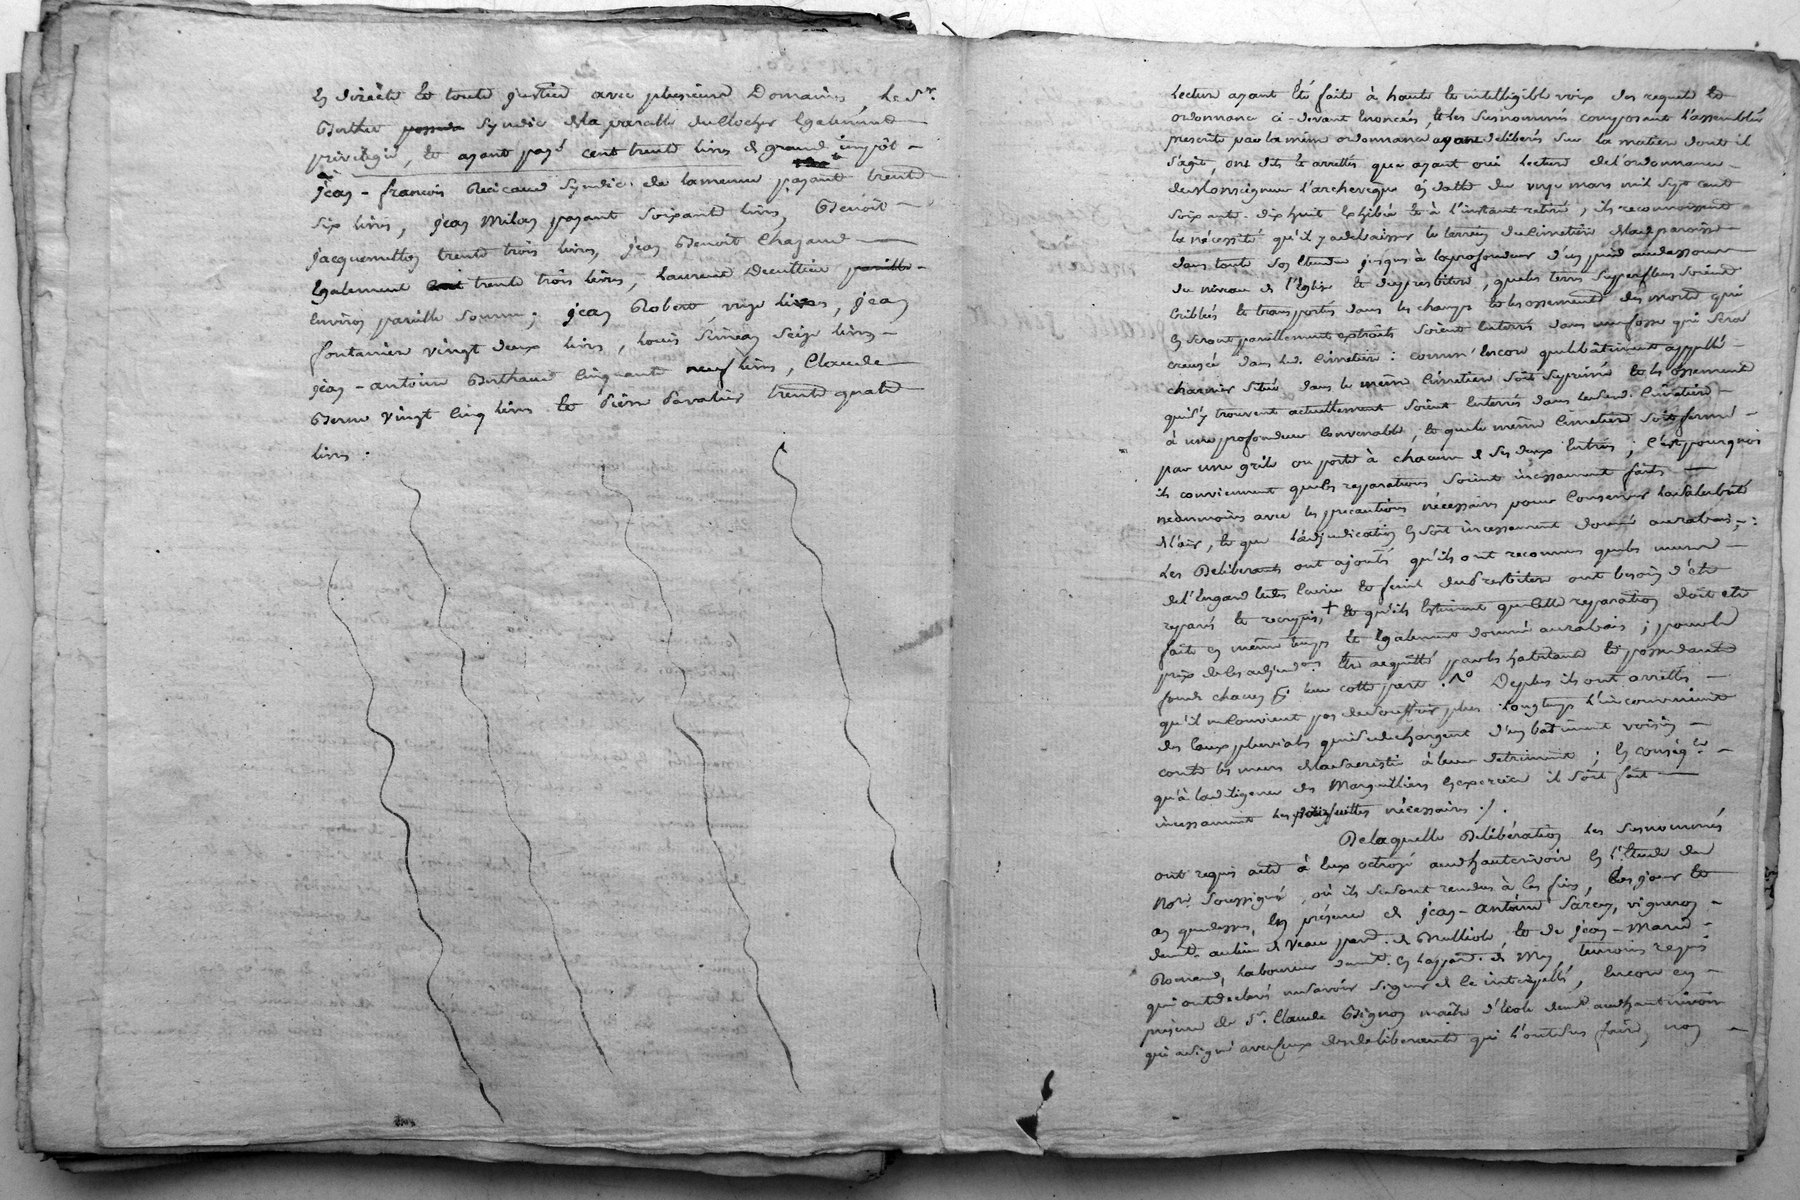 En directe et toute justice avec plusieurs Domaines, le Sr.
Berthet syndic de la parcelle du Clocher Egalement
privilégié, et ayant payé cent trente livres de grand impôt
jean-françois Recicaud syndic de la meme payant trente
six livres, jean Milan payant soixante livres, Benoit
jacquemetton trente trois livres, jean Benoit Chazaud
Egalement trente trois livres, Laurent Decultieu
Environ pareille somme; jean Robert, vingt livres, jean
fontanier vingt deux livres, Louis Simean seize livres
jean-antoine Berthaud Cinquante neuf livres, Claude
Berne vingt Cinq livres et Pierre Pavalier trente quatre
livres.
Lecture ayant été faite à haute et intelligible voix des requete et
ordonnance ci-devant Enoncées, et les susnommés composant l'assemblée
prescrite par la même ordonnance ayant délibérés sur la matiere dont il
s'agit, ont dits et arrettés que ayant oui lecture de l'ordonnance
de Monseigneur l'archeveque En datte du mars mil sept cent
soixante-dix huit Exhibée et à l'instant retirée, ils reconnoissent
la nécessité qu'il y a de baisser le terrein du Cimetiere de lad. paroisse
dans toute son Etendue jusqu'à la profondeur d'un pied au dessous
du niveau de l'Eglise et du presbitere, que les terres superflues soient
Criblées et transportées dans les champs et les ossements des morts qui
En seront pareillement extraits soient Enterrés dans une fosse qui sera
creusée dans led. Cimetiere: comm'Encore que le bâtiment appellé
charnier situé dans le même Cimetiere soit suprimé et les ossements
qui s'y trouvent actuellement soient Enterrés dans led. Cimetiere
à une profondeur Convenable, et que le même Cimetiere soit fermé
par une grile ou porte à chacune de ses deux Entrées; C'est pourquoi
ils conviennent que les reparations soient incessamment faites
néanmoins avec les précautions nécessaires pour Conserver la salubrité
de l'air, et que l'adjudication En soit incessamment donnée au rabais;
Les Déliberants ont ajoutés qu'ils ont reconnus que les murs
de l' Ecurie et fenil du Presbitere ont besoin d'être
reparés et recrepis, + et qu'ils Estiment que cette reparation doit etre
faite En même temps et Egalement donnée au rabais; pour le
prix de les adjudons. Etre acquitté par les habitants et possedants
fonds chacun pr. leur cotte part. De plus ils ont arrettés
qu'il ne Convient pas de souffrir plus longtemps l'inconvenient
des Eaux pluviales qui se dechargent d'un bâtiment voisin
contre les murs de la Sacristie à leur detriment; En conséqce
qu'à la diligence des Marguilliers En exercice il soit fait
incessamment les poursuittes nécessaires ./.
De laquelle Délibération les susnommés
ont requis acte à Eux octroyé aud. hautrivoir En l'Etude du
Nore. soussigné, où ils se sont rendus à ces fins, les jour et
an que dessus, En présence de jean-antoine Sarcey, vigneron
demt. au lieu de Veau parse. de Brulliole, et de jean-Marie
Romand, laboureur demt. En lad. parse. de temoins requis
qui ont declarés ne savoir signer de ce interpellés, Encore en
présence de Sr. Claude Bignon maître d'école demt. aud. hautrivoir
qui a signé avec ceux des deliberants qui l'ont su faire, non